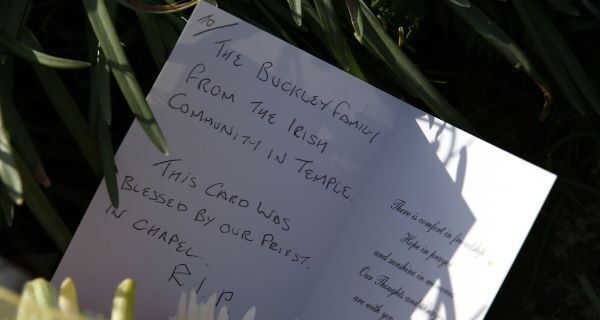 To/
THE BUCKLEY FAMILY
FROM THE IRISH
COMMUNITY IN TEMPLE.
THIS CARD WAS
BLESSED BY OUR PRIEST.
IN CHAPEL
RIP
There is comfort in friendship
Hope in prayer
and sunshine in
Our Thoughts and
are with you